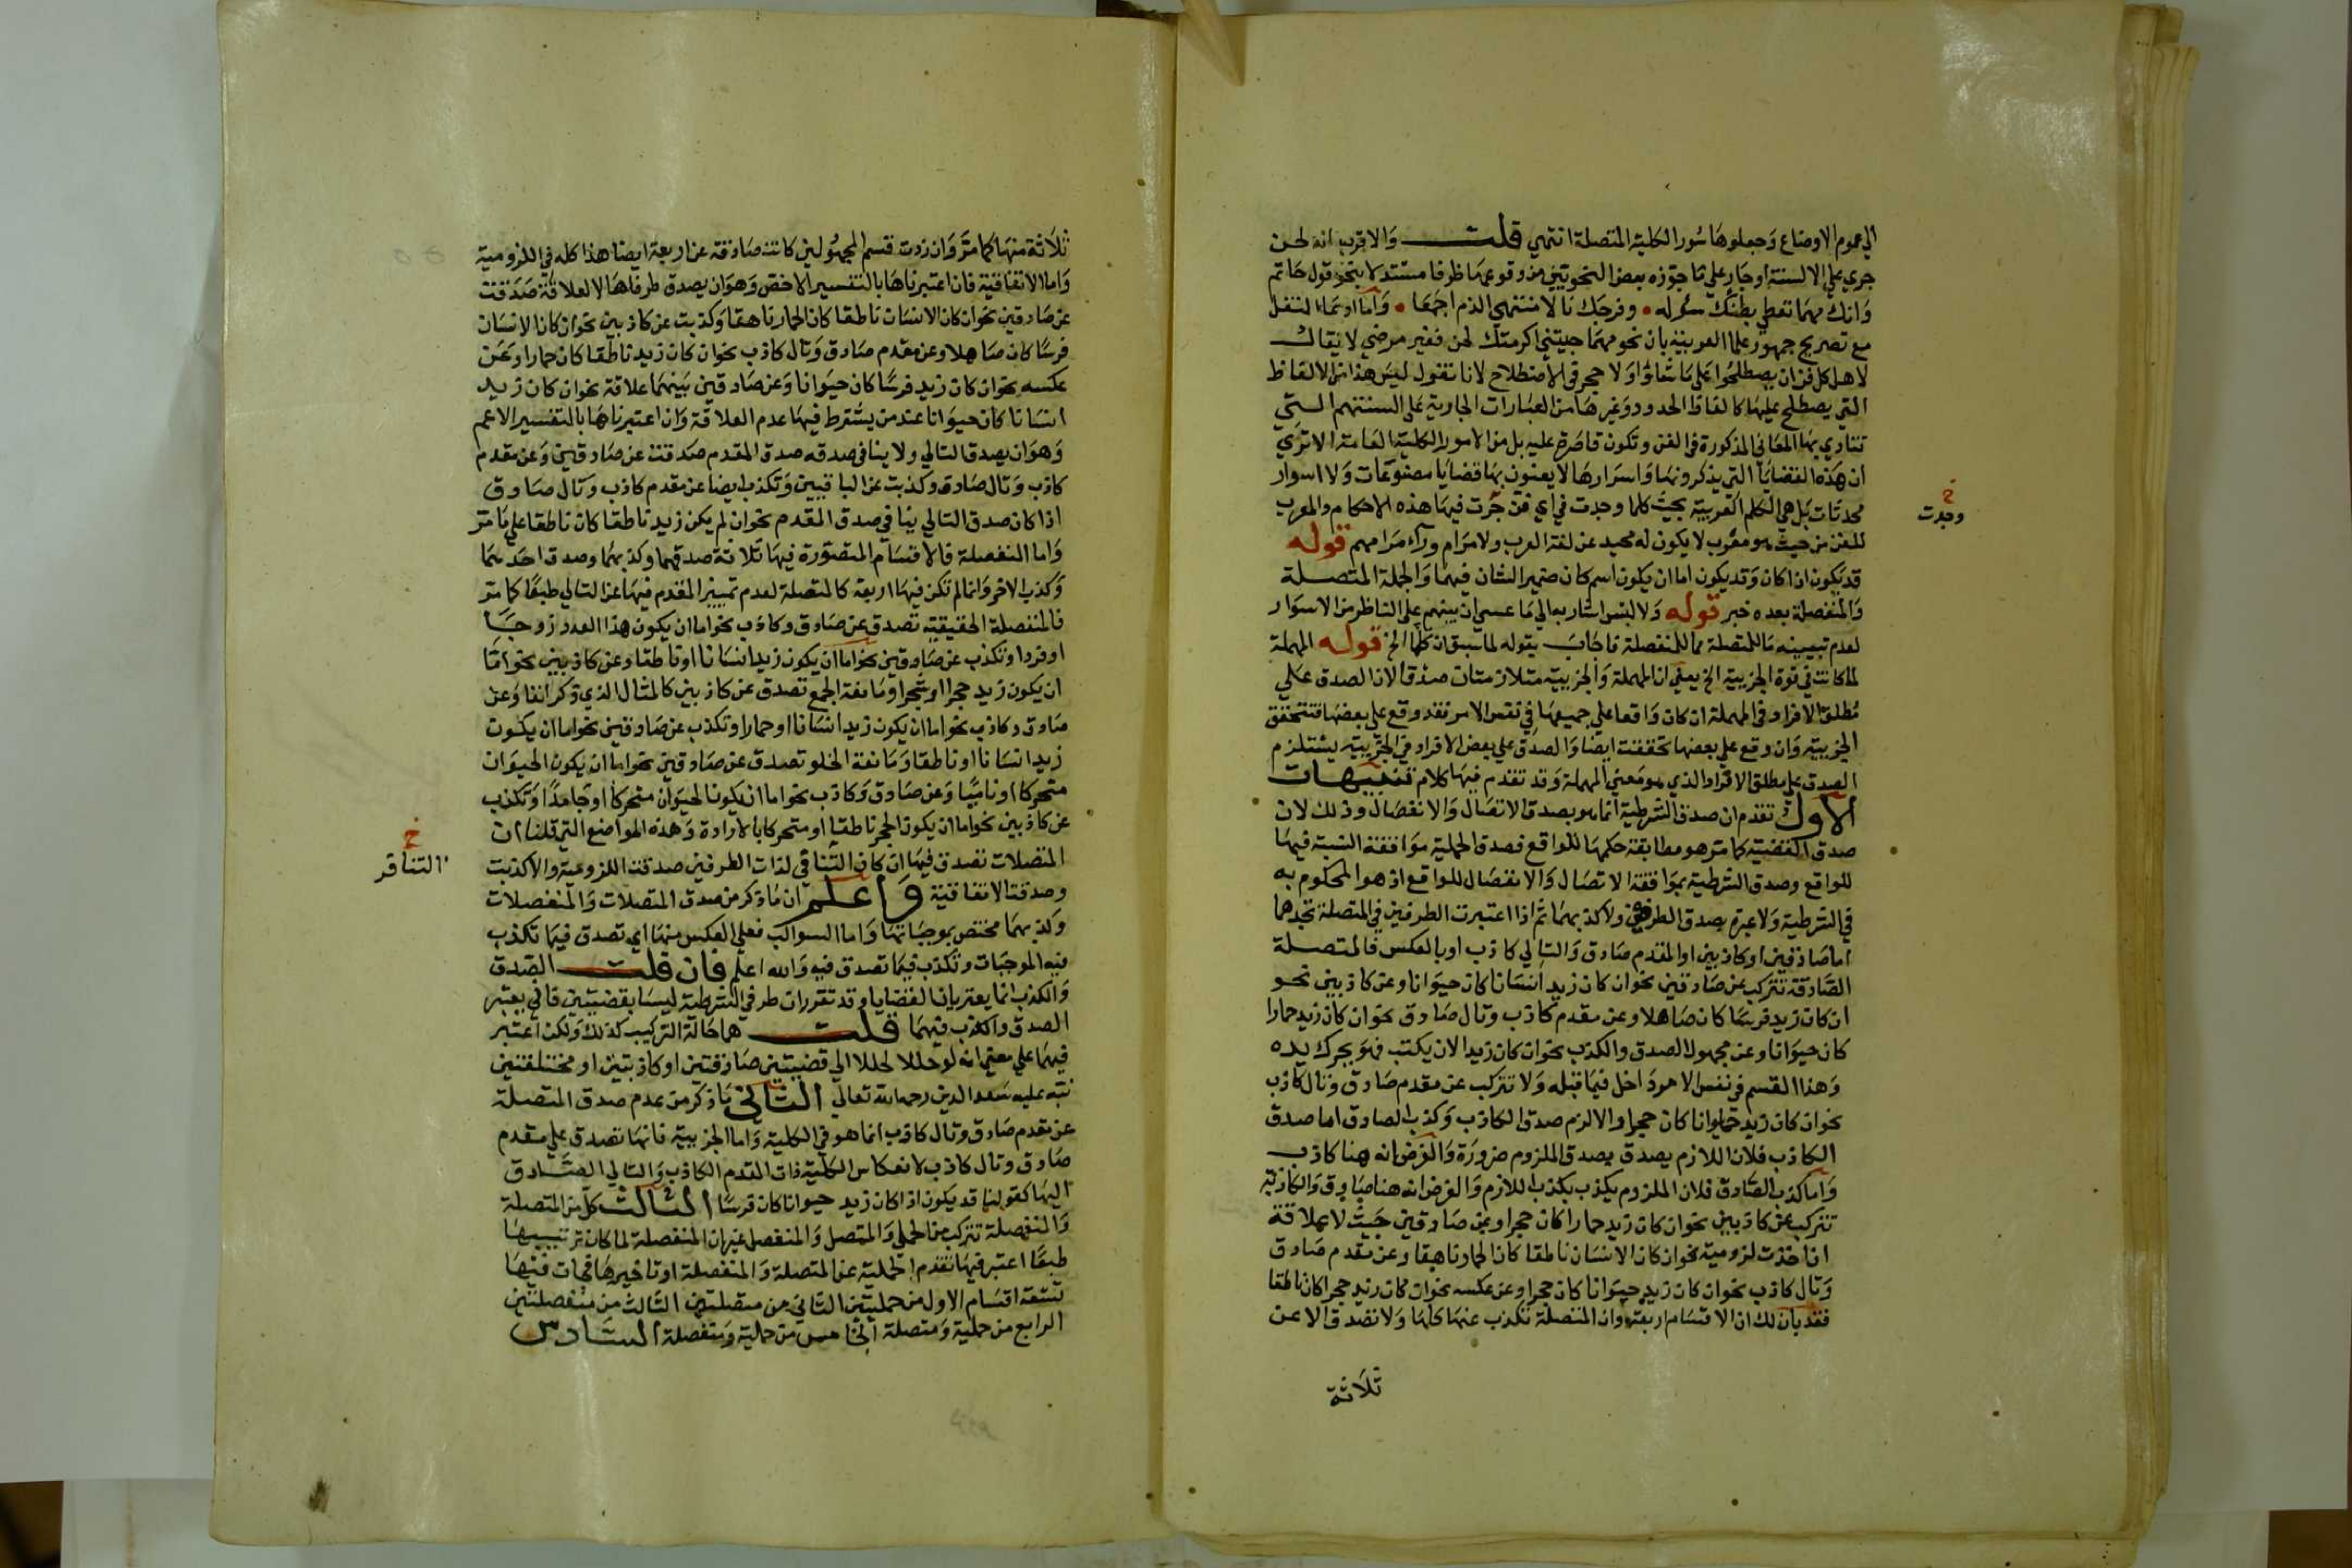 الي عموم الاوضاع وجعلوها سور الكلية المتصلة انتهي قلت والاقرب انه لحن
جري علي الالسنة او جار علي ما جوزه بعض النحويين من وقوع مهما ظرفا مستدلا بنحو قول حاتم
وانك مهما تعط بطنك سوله • وفرجك نالا منتهي الذم اجمعا • واما النقل
مع تصريح جمهور علما العربية بان نحو مهما جيتني اكرمتك لحن فغير مرضي لا يقال
لاهل كل فن ان يصطلحوا علي ما شاوا ولا حجر في الاصطلاح لانا نقول ليس هذا من الالفاظ
التي يصطلح عليها كالفاظ الحدود وغيرها من العبارات الجارية علي السنتهم التي
تتادي بها المعاني المذكورة في الفن وتكون قاصرة عليه بل من الامور الكلية العامة الا تري
ان هذه القضايا التي يذكرونها واسوارها لا يعنون بها قضايا مصنوعات ولا اسوار
محدثات بل هي الكلم العربية بحيث كلما وجدت في اي فن جرت فيها هذه الاحكام والمعرب
للفن من حيث هو معرب لا يكون له محيد عن لغة العرب ولا مرام وراء مرامهم قوله
قد يكون اذا كان وقد يكون اما ان يكون اسم كان ضمير الشان فيهما والجملة المتصلة
والمنفصلة بعده خبر قوله ولا لبس اشار به الي ما عسي ان يبهم علي الناظر من الاسوار
لعدم تبيينه ما للمتصلة مما للمنفصلة فاجاب بقوله لما سبق ان كلما الخ قوله المهملة
لما كانت في قوة الجزيية الخ يعني ان المهملة والجزيية متلازمتان صدقا لان الصدق علي
مطلق الافراد في المهملة ان كان واقعا علي جميعها في نفس الامر فقد وقع علي بعضها فتتحقق
الجزيية وان وقع علي بعضها تحققت ايضا والصدق علي بعض الافراد في الجزيية يستلزم
الصدق علي مطلق الافراد الذي هو معني المهملة وقد تقدم فيها كلام تنبيهات
الاول تقدم ان صدق الشرطية انما هو بصدق الاتصال والانفصال وذلك لان
صدق القضية كما مر هو مطابقة حكمها للواقع فصدق الحملية موافقة النسبة فيها
للواقع وصدق الشرطية بموافقة الاتصال والانفصال للواقع اذ هو المحكوم به
في الشرطية ولا عبرة بصدق الطرفين ولا كذبهما ثم اذا اعتبرت الطرفين في المتصلة تجدهما
اما صادقين او كاذبين او المقدم صادق والتالي كاذب او بالعكس فالمتصلة
الصادقة تتركب عن صادقين نحو ان كان زيد انسانا كان حيوانا وعن كاذبين نحو
ان كان زيد فرسا كان صاهلا وعن مقدم كاذب وتال صادق نحو ان كان زيد حمارا
كان حيوانا وعن مجهول الصدق والكذب نحو ان كان زيد الان يكتب فهو يحرك يده
وهذا القسم في نفس الامر داخل فيما قبله ولا تتركب عن مقدم صادق وتال كاذب
نحو ان كان زيد حيوانا كان حجرا والا لزم صدق الكاذب وكذب الصادق اما صدق
الكاذب فلان اللازم يصدق بصدق الملزوم ضرورة والفرض انه هنا كاذب
واما كذب الصادق فلان الملزوم يكذب بكذب اللازم والفرض انه هنا صادق والكاذبة
تتركب عن كاذبين نحو ان كان زيد حمارا كان حجرا وعن صادقين حيث لا علاقة
ان اخذت لزومية نحو ان كان الانسان ناطقا كان الحمار ناهقا وعن مقدم صادق
وتال كاذب نحو ان كان زيد حيوانا كان حجرا وعن عكسه نحو ان كان زيد حجرا كان ناطقا
فقد بان لك ان الاقسام اربعة وان المتصلة تكذب عنها كلها ولا تصدق الا عن
ثلاثة
خ
وجدت
ثلاثة منها كما مر وان زدت قسم المجهولين كانت صادقة عن اربعة ايضا هذا كله في اللزومية
واما الاتفاقية فان اعتبرناها بالتفسير الاخص وهو ان يصدق طرفاها لا لعلاقة صدقت
عن صادقين نحو ان كان الانسان ناطقا كان الحمار ناهقا وكذبت عن كاذبين نحو ان كان الانسان
فرسا كان صاهلا وعن مقدم صادق وتال كاذب نحو ان كان زيد ناطقا كان حمارا وعن
عكسه نحو ان كان زيد فرسا كان حيوانا وعن صادقين بينهما علاقة نحو ان كان زيد
انسانا كان حيوانا عند من يشترط فيها عدم العلاقة وان اعتبرناها بالتفسير الاعم
وهو ان يصدق التالي ولا ينافي صدقه صدق المقدم صدقت عن صادقين وعن مقدم
كاذب وتال صادق وكذبت عن الباقيين وتكذب ايضا عن مقدم كاذب وتال صادق
اذا كان صدق التالي ينافي صدق المقدم نحو ان لم يكن زيد ناطقا كان ناطقا علي ما مر
واما المنفصلة فالاقسام المتصورة فيها ثلاثة صدقهما وكذبهما وصدق احدهما
وكذب الاخر وانما لم تكن فيها اربعة كالمتصلة لعدم تمييز المقدم فيها عن التالي طبعا كما مر
فالمنفصلة الحقيقية تصدق عن صادق وكاذب نحو اما ان يكون هذا العدد زوجا
او فردا وتكذب عن صادقين نحو اما ان يكون زيد انسانا او ناطقا وعن كاذبين نحو اما
ان يكون زيد حجرا او شجرا ومانعة الجمع تصدق عن كاذبين كالمثال الذي ذكر انفا وعن
صادق وكاذب نحو اما ان يكون زيد انسانا او حمارا وتكذب عن صادقين نحو اما ان يكون
زيد انسانا او ناطقا ومانعة الخلو تصدق عن صادقين نحو اما ان يكون الحيوان
متحركا او ناميا وعن صادق وكاذب نحو اما ان يكون الحيوان متحركا او جامدا وتكذب
عن كاذبين نحو اما ان يكون الحجر ناطقا او متحركا بالارادة وهذه المواضع التي قلنا ان
المنفصلات تصدق فيها ان كان التنافي لذات الطرفين صدقت اللزومية والا كذبت
وصدقت الاتفاقية واعلم ان ما ذكر من صدق المتصلات والمنفصلات
وكذبهما مختص بموجباتها واما السوالب فعلي العكس منها اي تصدق فيما تكذب
فيه الموجبات وتكذب فيما تصدق فيه والله اعلم فان قلت الصدق
والكذب انما يعتريان القضايا وقد تقرر ان طرفي الشرطية ليسا بقضيتين فاني يعتبر
الصدق والكذب فيهما قلت هما حالة التركيب كذلك ولكن اعتبر
فيهما علي معني انه لو حللا لحللا الي قضيتين صادقتين او كاذبتين او مختلفتين
نبه عليه سعد الدين رحمه الله تعالي الثاني ما ذكر من عدم صدق المتصلة
عن مقدم صادق وتال كاذب انما هو في الكلية واما الجزيية فانها تصدق علي مقدم
صادق وتال كاذب لانعكاس الكلية ذات المقدم الكاذب والتالي الصادق
اليها كقولنا قد يكون اذا كان زيد حيوانا كان فرسا الثالث كل من المتصلة
والمنفصلة تتركب من الحملي والمتصل والمنفصل غير ان المنفصلة لما كان ترتيبها
طبعا اعتبر فيها تقدم الحملية عن المتصلة والمنفصلة او تاخيرها فجات فيها
تسعة اقسام الاول من حمليتين الثاني من متصلتين الثالث من منفصلتين
الرابع من حملية ومتصلة الخامس من حملية ومنفصلة السادس
خ
التنافر